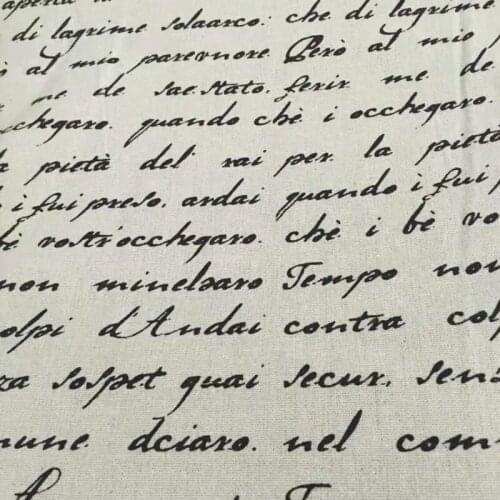 di lagrime solaarco: che di lagrime
al mio parevuore Però al mio
me de sae stato. ferir me de
chegaro. quando chè i occhegaro.
pietà del' rai per la pietà
i fui preso, ardai quando i fui p
bè vostr'occhegaro. chè i bè vo
non minelsaro Tempo non
olpi d'Andai contra colp
za sospet quai secur, senz
mune dciaro. nel com